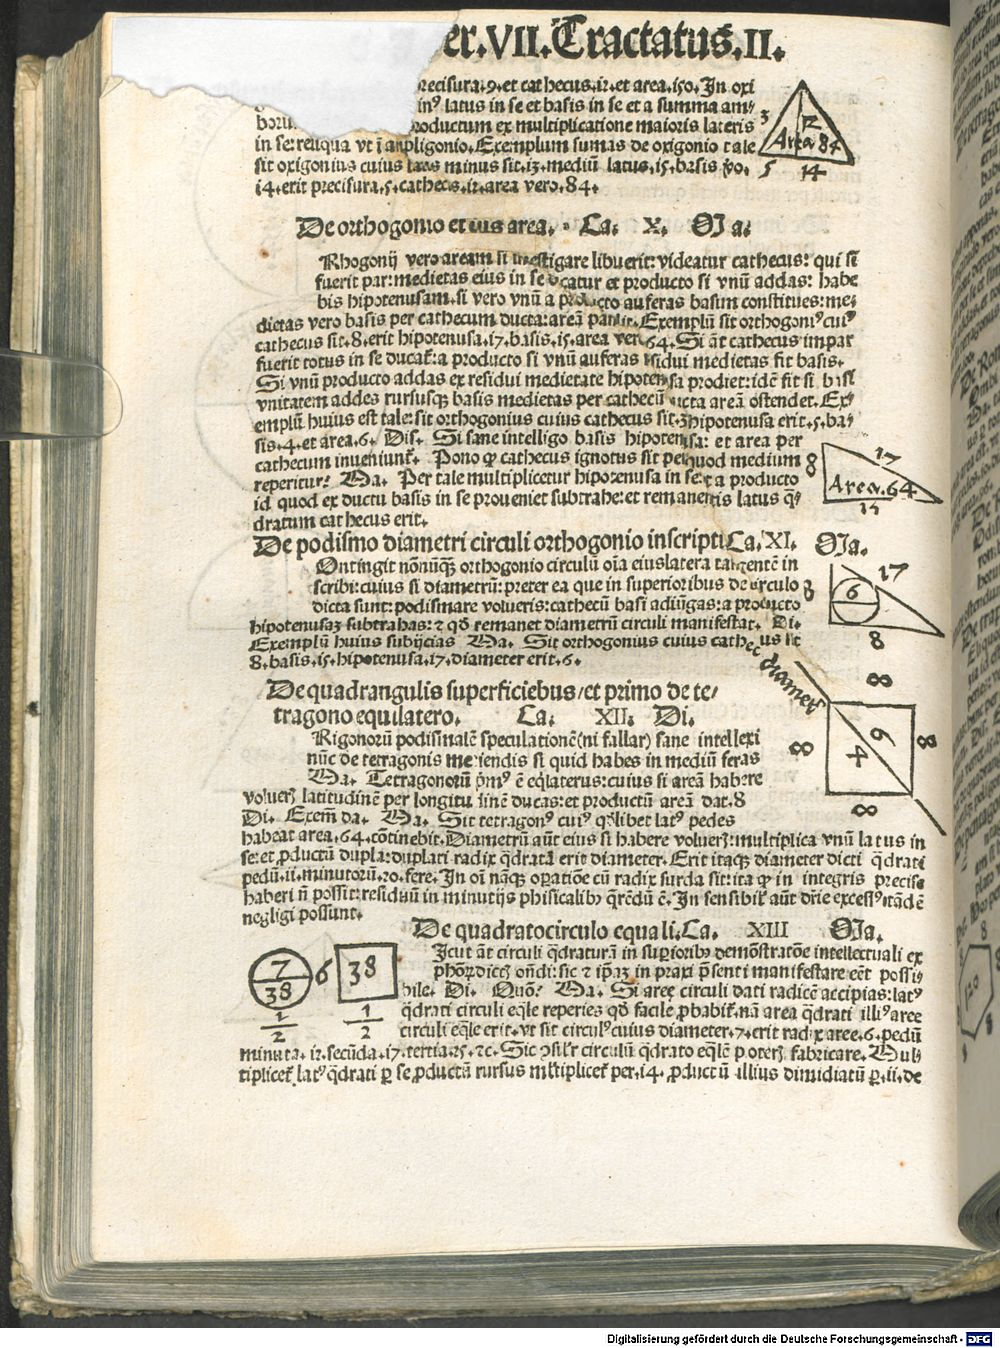 er.VII.Tractatus.II.
recisura.9.et cathecus.12.et area.150.In oxi
latus in se et basis in se et a summa am-
productum ex multiplicatione maioris lateris
in se:reliqua vt ī ampligonio.Exemplum sumas de oxigonio tale
sit oxigonius cuius latus minus sit.13.mediū latus.15.basis ṽo.
14.erit precisura.5.cathecus.12.area vero.84.
12
Area 84
5 14
De orthogonio et eius area. Ca. X. Ma.
Rhogonij vero aream si inuestigare libuerit:videatur cathecus: qui si
fuerit par:medietas eius in se ducatur et producto si vnū addas: habe
bis hipotenusam.si vero vnū a producto auferas basim constitues:me-
dietas vero basis per cathecum ducta:areā pandit.Exemplū sit orthogoniꝰ cuiꝰ
cathecus sit.8.erit hipotenusa.17.basis.15.area vero.64.Si āt cathecus impar
fuerit totus in se ducat̄:a producto si vnū auferas residui medietas fit basis.
Si vnū producto addas ex residui medietate hipotenusa prodiet:idē fit si basi
vnitatem addes rursusq̃ basis medietas per cathecū ducta areā ostendet.Ex-
emplū huius est tale:sit orthogonius cuius cathecus sit.3.hipotenusa erit.5.ba-
sis.4.et area.6. Dis. Si sane intelligo basis hipotenusa: et area per
cathecum inueniunt̄. Pono ꝙ cathecus ignotus sit per quod medium
reperitur? Ma. Per tale multiplicetur hipotenusa in se: et a producto
id quod ex ductu basis in se proueniet subtrahe:et remanentis latus q̄-
dratum cathecus erit.
8 17
Area.64
15
De podismo diametri circuli orthogonio inscripti Ca. XI. Ma.
Ontingit nōnūq̃ orthogonio circulū oīa eius latera tangentē in
scribi:cuius si diametrū:preter ea que in superioribus de circulo
dicta sunt:podismare volueris:cathecū basi adiūgas:a producto
hipotenusaȝ subtrahas: et qđ remanet diametrū circuli manifestat. Di.
Exemplū huius subijcias Ma. Sit orthogonius cuius cathecus sit
8.basis.15.hipotenusa.17.diameter erit.6.
17
6
8
De quadrangulis superficiebus/et primo de te-
tragono equilatero. Ca. XII. Di.
Rigonorū podismalē speculationē(ni fallar) sane intellexi
nūc de tetragonis metiendis si quid habes in mediū feras
Ma. Tetragonorū p̄mꝰ ē eq̄laterus:cuius si areā habere
volueris latitudinē per longitudinē ducas:et productū areā dat.8
Di. Exem̄ da. Ma. Sit tetragonꝰ cuiꝰ q̄libet latꝰ pedes
habeat area.64.cōtinebit.Diametrū aūt eius si habere volueris:multiplica vnū latus in
se:et ꝓductū dupla:duplati radix q̄drata erit diameter.Erit itaq̃ diameter dicti q̄drati
pedū.11.minutorū.20.fere.In oī nāq̃ oꝑatiōe cū radix surda sit:ita ꝙ in integris precise
haberi nō possit:residuū in minutijs phisicalibꝰ q̄rēdū ē.In sensibiī aūt dr̄ie excessꝰ itadē
negligi possunt.
8
8 64 8
8
De quadrato circulo equali. Ca. XIII Ma.
Icut āt circuli q̄draturā in suꝑioribꝰ demōstratōe intellectuali ex
bile. Di. Quō? Ma. Si aree circuli dati radicē accipias:latꝰ
q̄drati circuli eq̄le reperies qđ facile ꝓbabiī.nā area q̄drati illiꝰ aree
circuli eq̄le erit.vt sit circulꝰ cuius diameter.7.erit radix aree.6.pedū
minuta.12.secūda.17.tertia.25.⁊c.Sic ꝯsiīr circulū q̄drato eq̄lē poteris fabricare.Mul
tiplicet̄ latꝰ q̄drati ꝑ se.ꝓductū rursus mltiplicet̄ per.14.ꝓductū illius diuidatū ꝑ.11.de
7
38
1
2
6 38
1
2
8
120
Digitalisierung gefördert durch die Deutsche Forschungsgemeinschaft - DFG